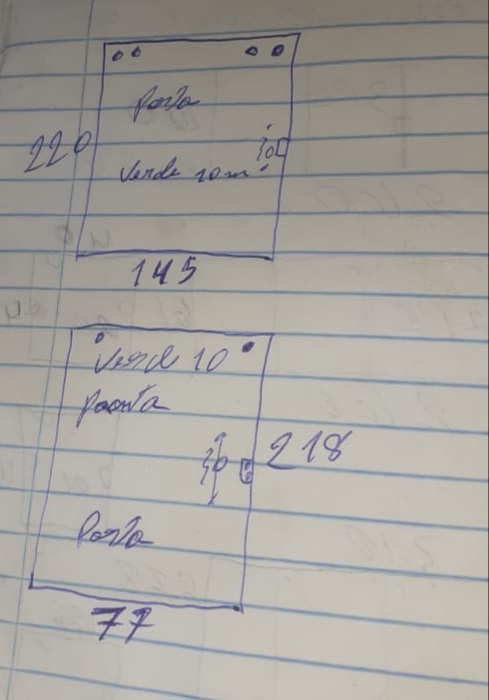 Porta
220
Verde 10m
145
Verde 10
Poorta
218
Porta
77